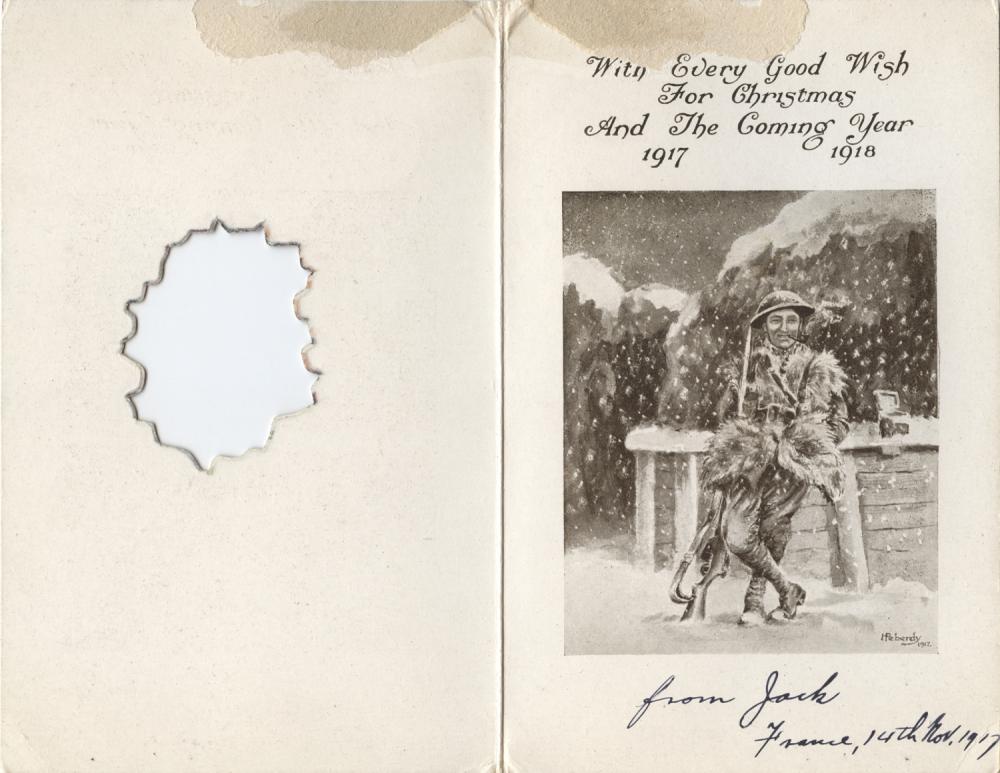 With Every Good Wish
For Christmas
And The Coming Year
1917 1918
1917.
from Jack
France, 14th Nov. 1917